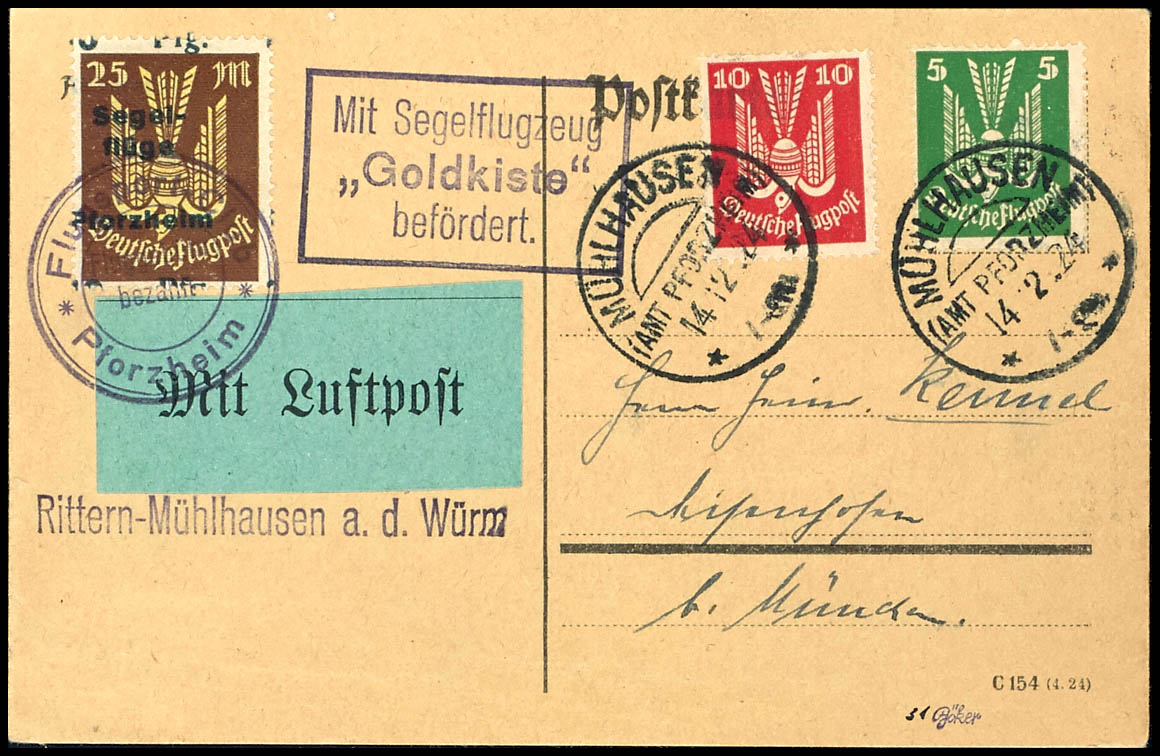 Pfg.
25 M
Segel-
flüge
Pforzheim
Deutsche Flugpost
Flug
bezahlt
* Pforzheim *
Mit Segelflugzeug
„Goldkiste"
befördert.
Postk
10 10
Deutsche Flugpost
5 5
Deutsche Flugpost
MÜHLHAUSEN
(AMT PFORZHEIM)
14.12.24
MÜHLHAUSEN
(AMT PFORZHEIM)
14.12.24
Mit Luftpost
Rittern-Mühlhausen a. d. Würm
Herrn Heinr.
b. München.
C 154 (4. 24)
Böker